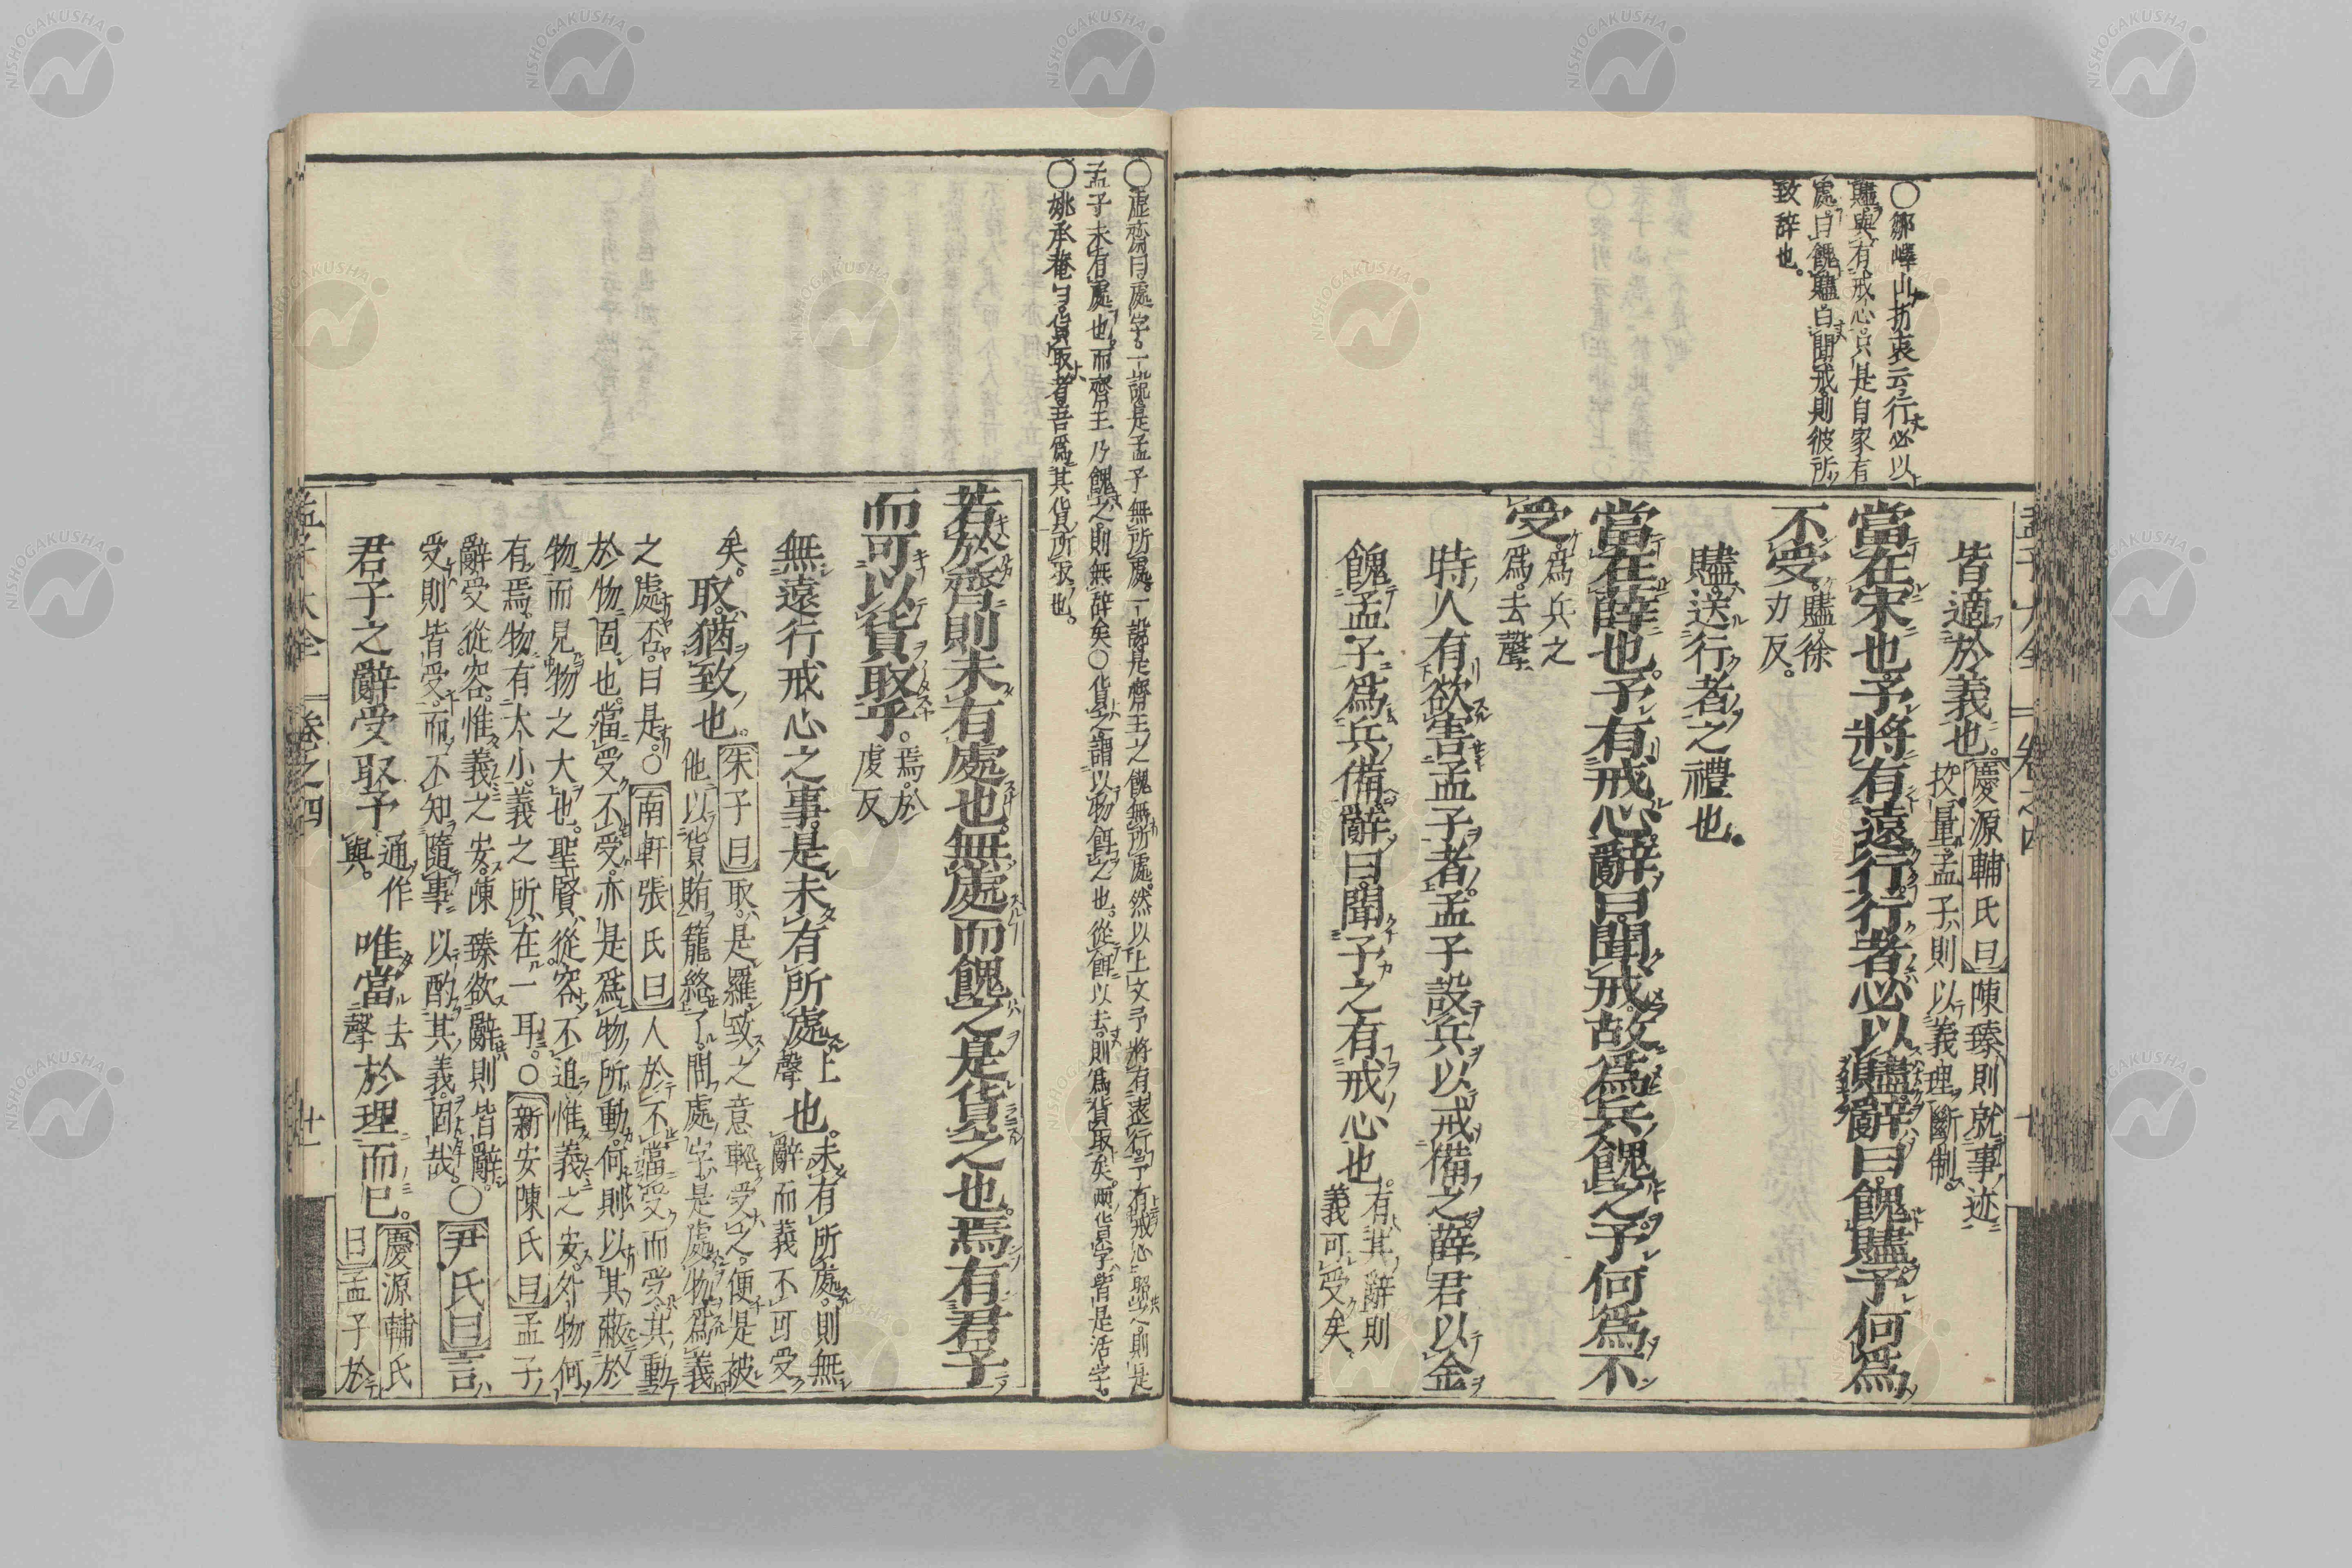 ○鄒嶧山折衷云行必以
贐與有戒心只是自家有
處曰餽贐曰聞戒則彼所
致辞也
皆適於義也慶源輔氏曰陳臻則就事迹
挍量孟子則以義理斷制
當在宋也予將有遠行行者必以贐辭曰餽贐予何爲
不受贐徐
刃反
贐送行者之禮也
當在薛也予有戒心辭曰聞戒故爲兵餽之予何爲不
受爲兵之
爲去聲
時人有欲害孟子者孟子設兵以戒備之薛君以金
餽孟子爲兵備辭曰聞子之有戒心也有其辭則
義可受矣
○虛齋曰處字一說是孟子無所處一說是齊王之餽無所處然以上文予將有遠行予有戒心照之則是
孟子未有處也而齊王乃餽之則無辞矣○貨之謂以物餌之也從餌以去則爲貨取矣兩貨字皆是活字
○姚承菴曰貨取者吾爲其貨所取也
若於齊則未有處也無處而餽之是貨之也焉有君子
而可以貨取乎焉於
虔反
無遠行戒心之事是未有所處上
聲也未有所處則無
辭而義不可受
矣取猶致也朱子曰取是羅致之意輕受之便是被
他以貨賄籠絡了問處字是處物爲義
之處否曰是○南軒張氏曰人於不當受而受其動
於物固也當受不受亦是爲物所動何則以其蔽於
物而見物之大也聖賢從容不迫惟義之安外物何
有焉物有大小義之所在一耳○新安陳氏曰孟子
辭受從容惟義之安陳臻欲辭則皆辭
受則皆受而不知隨事以酌其義固哉○尹氏曰言
君子之辭受取予通作
與唯當去
聲於理而已慶源輔氏
曰孟子於
孟子大全 卷之四 十一